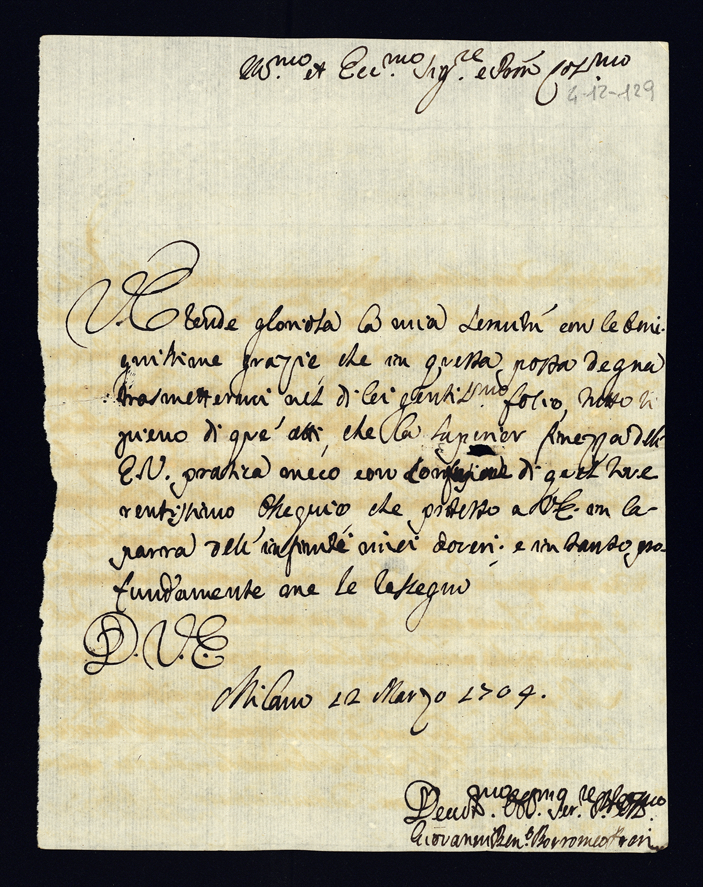 Ill.mo et Ecc.mo Sig.re e Pron Col.mo
4-12-129
V.E. rende gloriosa la mia servitù con le beni-
gnissime grazie, che in questa posta degna
trasmettermi nel di lei gentiss.mo folio, tutto
pieno di que' atti, che la superior finezza dell'
E.V. pratica meco con confusione di quest'
rentissimo ossequio che protesto a V.E. in la
parra dell' infiniti miei doveri; e in tanto pro-
fundamente me le rassegno
D. V. E.
Milano 12 Marzo 1704.
Devot.mo Obb. Ser.re
Giovanni Ben.o Borromeo